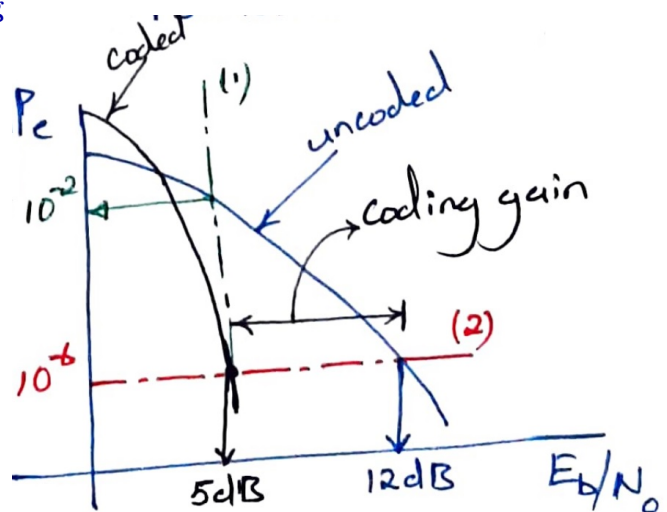 coded
(1)
Pe
uncoded
10⁻²
coding gain
(2)
10⁻⁶
5dB
12dB
Eb/N₀